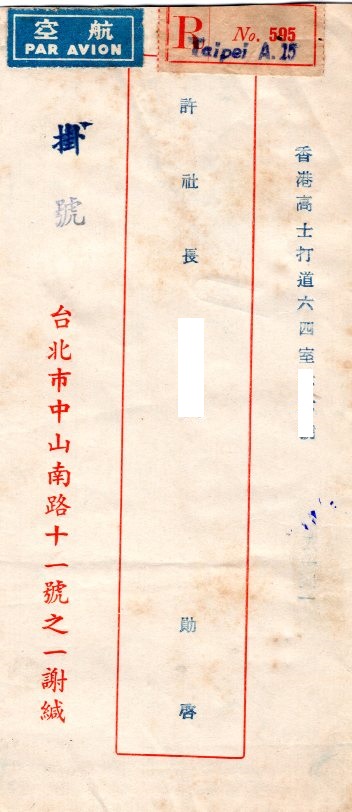 航空
PAR AVION
R No. 595
Taipei A. 15
香港高士打道六四室
許社長
勛啓
掛號
台北市中山南路十一號之一謝緘